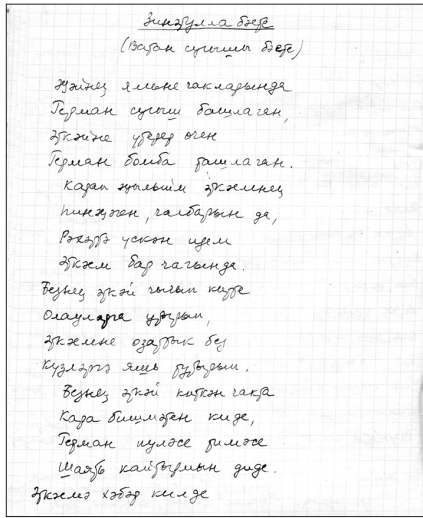 Зиннәтулла бәете
(Ватан сугышы бәете)
Җәйнең ямьне чакларында
Герман сугыш башлаган,
Әткәйне үтерер өчен
Герман бомба ташлаган.
Карап җылыйм әткәмнең
пинжәген, чалбарын да,
Рәхәттә үскән идем
Әткәм бар чагында.
Безнең әткәй чыгып китте
Олауларга утырып,
Әткәмне озаттык без
Күзләргә яшь тутырып.
Безнең әткәй киткән чакта
Кара бишмәтен киде,
Герман пуләсе тимәсә
Шаять кайтырмын диде.
Әткәмә хәбәр килде